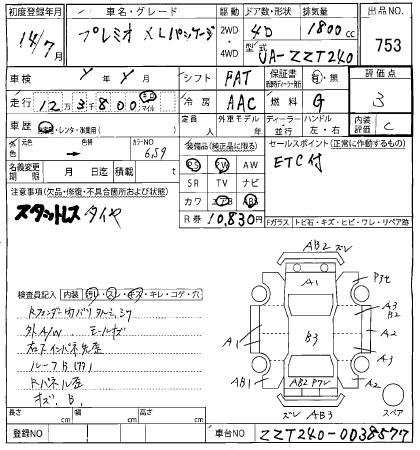 初度登録年月 車名・グレード 駆動 ドア数・形状 排気量 出品NO.
14/7月 プレミオ XLパッケージ 2WD 4WD 4D 1800cc 753
型式 UA-ZZT240
車検 Y 年 Y 月 シフト FAT 保証書 有・無 評価点
走行 12万3千800 マイル 冷房 AAC 燃料 G 3
車歴 自家用・レンタ・事業用( ) 定員 人 外車モデル 年 ディーラー 並行 ハンドル 左・右 内装評価 C
外色 元色 色替 カラーNO 6S9 装備品(純正品に限る) セールスポイント(正常に作動するもの)
PS PW AW ETC付
名義変更期限 月 日迄 積載 t SR TV ナビ
注意事項(欠品・修復・不具合箇所および状態) カワ エアB ABS
スタットレスタイヤ R券 10,830円 Fガラス トビ石・キズ・ヒビ・ワレ・リペア跡
検査員記入 内装 汚レ・スレ・キズ・キレ・コゲ・穴
外A/W モールキズ
右インパネ欠産
ルーフB
Rパネル
キズ、B、
AB2 ズレ
A1
A3
B2
A1 B3 A2
A3
AB1 AB2 A2
ズレ AB3 スペア
長さ cm 幅 cm 高さ cm
登録NO 車台NO ZZT240-0038577